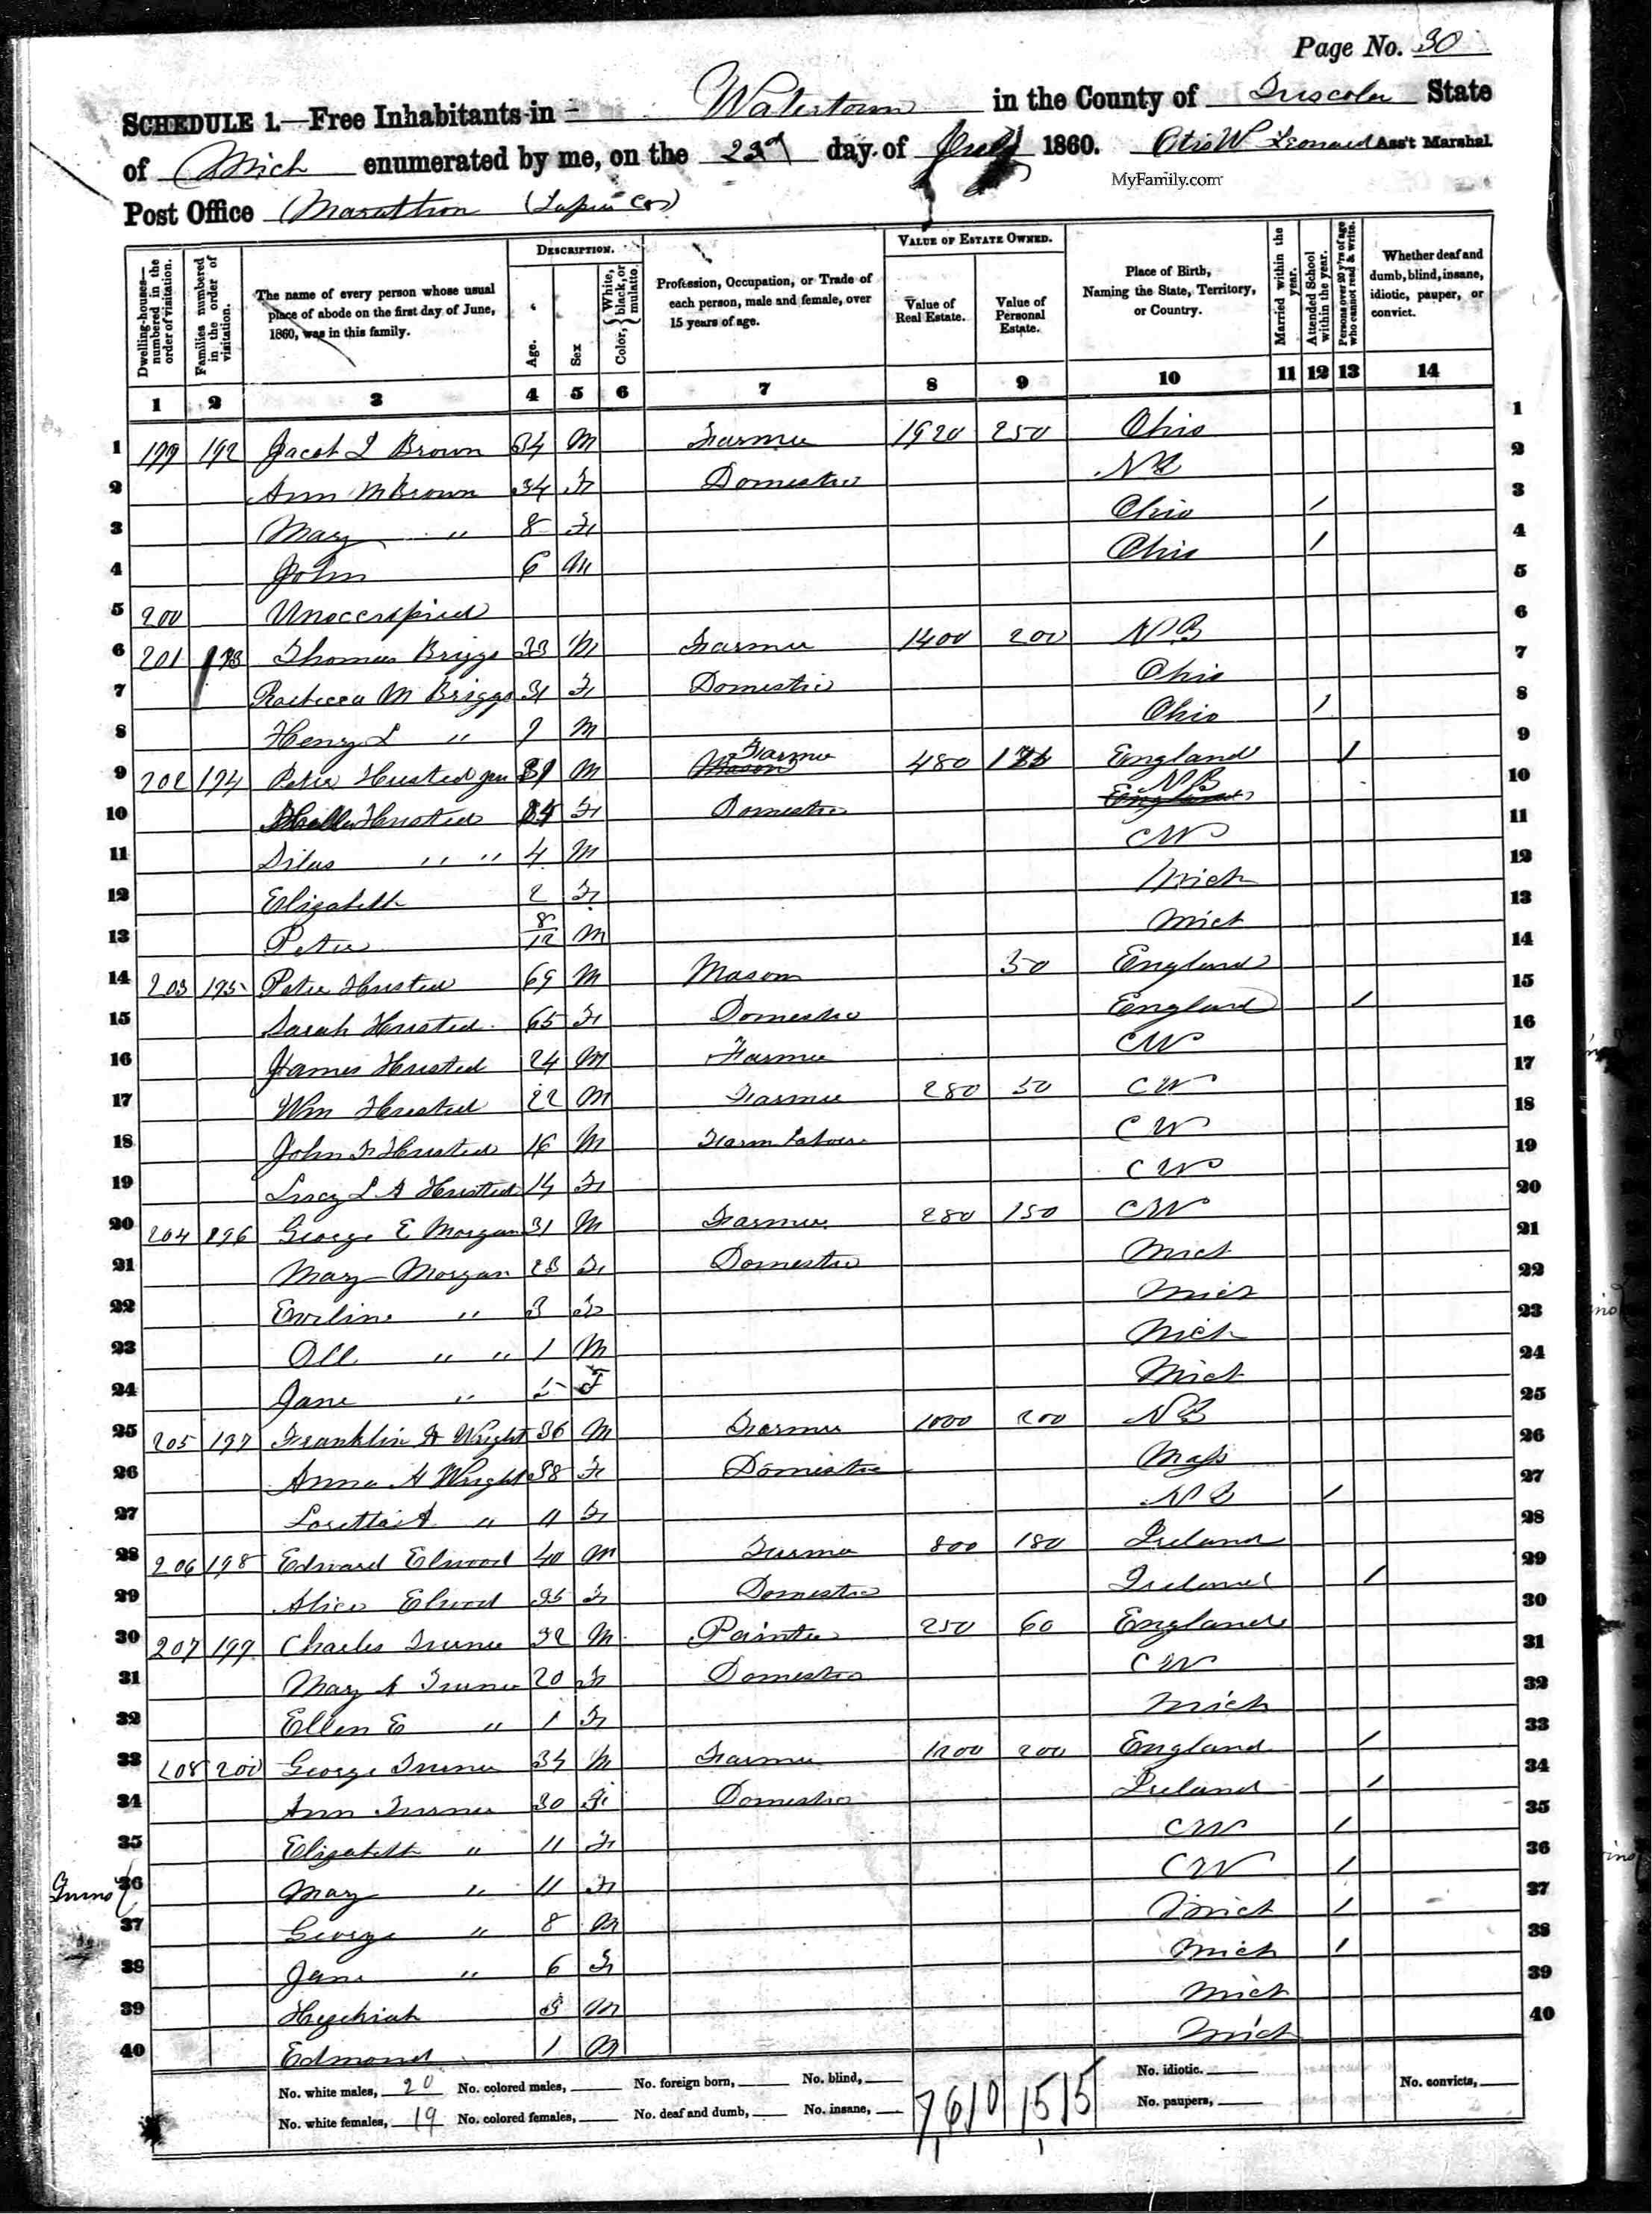 Page No. 30
SCHEDULE 1.—Free Inhabitants in Watertown in the County of Tuscola State
of Mich enumerated by me, on the 23d day of July 1860. Otis W Leonard Ass't Marshal.
MyFamily.com
Post Office Marathon (Lapeer Co)
Dwelling-houses—numbered in the order of visitation.
Families numbered in the order of visitation.
The name of every person whose usual place of abode on the first day of June, 1860, was in this family.
DESCRIPTION.
Age.
Sex
Color, White, black, or mulatto.
Profession, Occupation, or Trade of each person, male and female, over 15 years of age.
VALUE OF ESTATE OWNED.
Value of Real Estate.
Value of Personal Estate.
Place of Birth, Naming the State, Territory, or Country.
Married within the year.
Attended School within the year.
Persons over 20 y'rs of age who cannot read & write.
Whether deaf and dumb, blind, insane, idiotic, pauper, or convict.
1 2 3 4 5 6 7 8 9 10 11 12 13 14
1 199 192 Jacob L Brown 34 M Farmer 1920 250 Ohio 1
2 Ann M Brown 34 F Domestic 2
3 Mary " 8 F Ohio / 3
4 John 6 M Ohio / 4
5 200 Unoccupied 5
6 201 193 Thomas Briggs 33 M Farmer 1400 200 6
7 Rebecca M Briggs 31 F Domestic Ohio 7
8 Henry L " 9 M Ohio / 8
9 202 194 Peter Husted jun M Mason Farmer 480 England / 9
10 Husted F Domestic England 10
11 Silas " " 4 M CW 11
12 Elizabeth 2 F Mich 12
13 Peter 8/12 M Mich 13
14 203 195 Peter Husted 69 M Mason 50 England 14
15 Sarah Husted 65 F Domestic England / 15
16 James Husted 24 M Farmer CW 16
17 Wm Husted 22 M Farmer 280 50 CW 17
18 John F Husted 16 M Farm Labor CW 18
19 Lucy L A Husted 14 F CW 19
20 204 196 George E Morgan 31 M Farmer 280 150 CW 20
21 Mary Morgan 23 F Domestic Mich 21
22 Eveline " 3 F Mich 22
23 " " 1 M Mich 23
24 Jane " 5 F Mich 24
25 205 197 Franklin Wright 36 M Farmer 1000 200 25
26 Anna A Wright 38 F Domestic Mass 26
27 Loretta A " 11 F / 27
28 206 198 Edward Elwood 40 M Farmer 800 180 Ireland 28
29 Alice Elwood 35 F Domestic Ireland / 29
30 207 199 Charles Turner 32 M Painter 250 60 England 30
31 Mary A Turner 20 F Domestic CW 31
32 Ellen E " 1 F Mich 32
33 208 200 George Turner 34 M Farmer 1200 200 England / 33
34 Ann Turner 30 F Domestic Ireland / 34
35 Elizabeth " 11 F CW / 35
36 Mary " 11 F CW / 36
37 George " 8 M Mich / 37
38 Jane " 6 F Mich / 38
39 Hezekiah 3 M Mich 39
40 Edmond 1 M Mich 40
No. white males, 20 No. colored males, No. foreign born, No. blind, No. idiotic.
No. white females, 19 No. colored females, No. deaf and dumb, No. insane, 7610 1515 No. paupers, No. convicts,